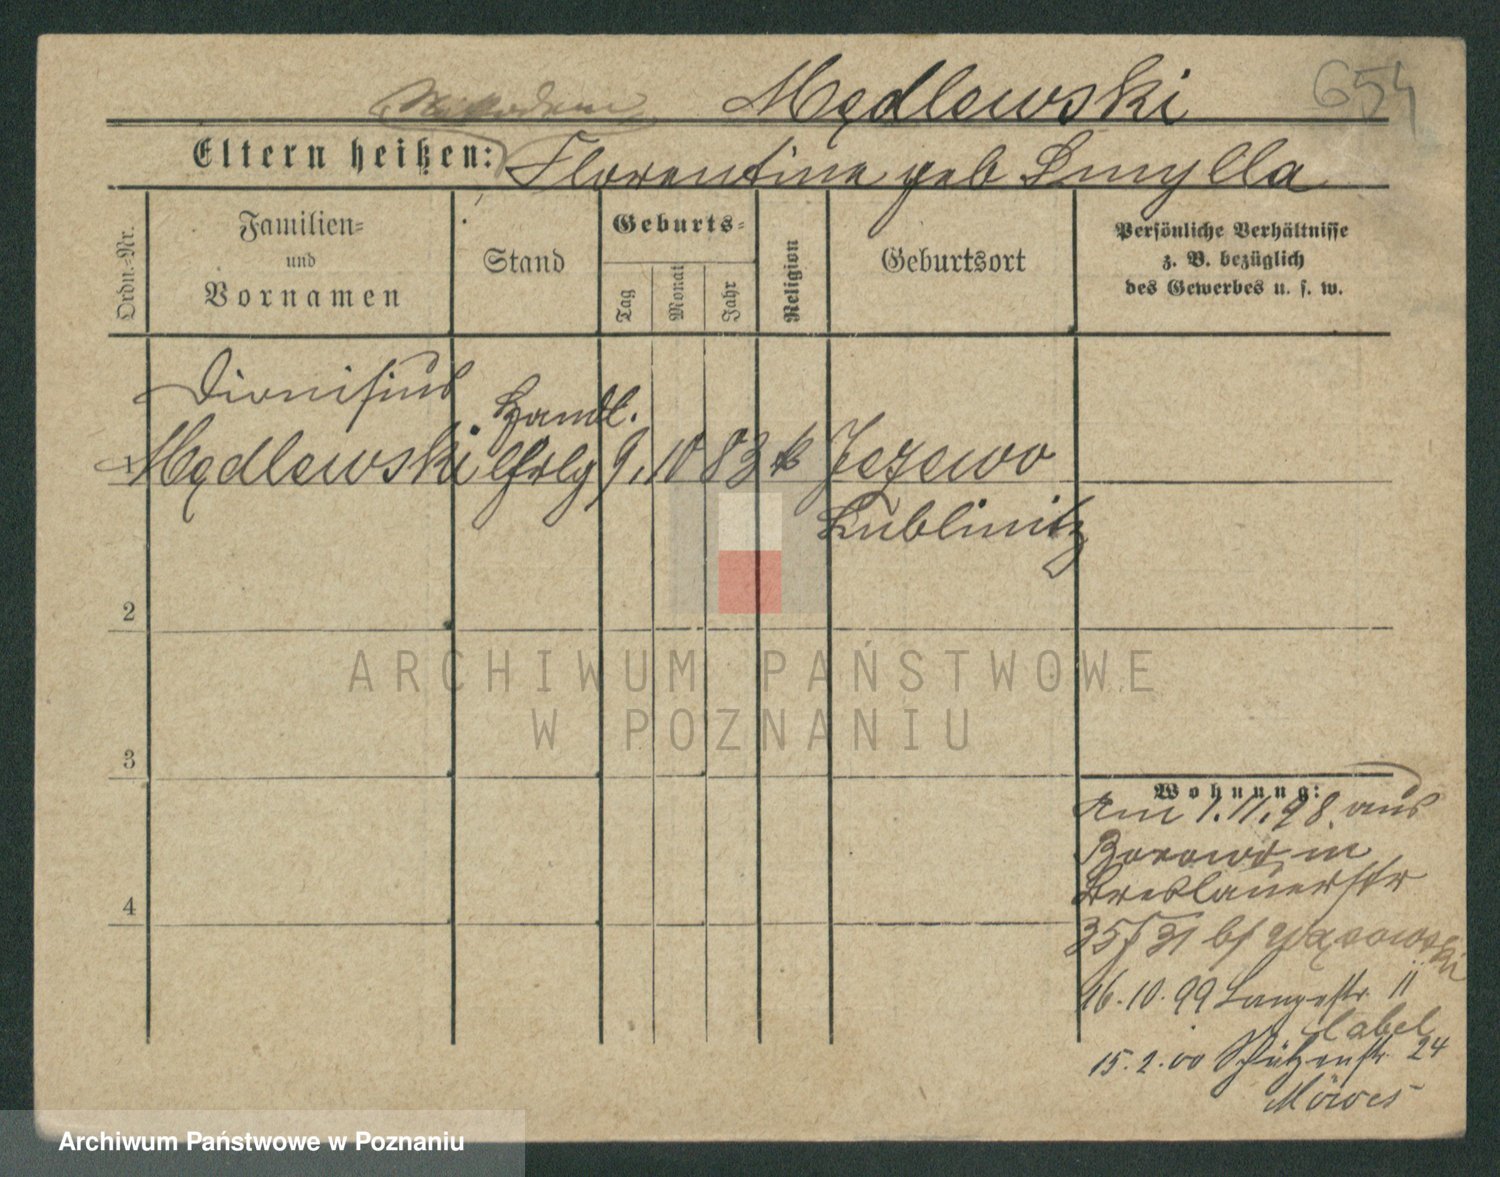 Mędlewski 654
Eltern heißen: Florentine geb Smylla
Ordn.-Nr.
Familien-
und
Vornamen
Stand
Geburts-
Tag
Monat
Jahr
Religion
Geburtsort
Persönliche Verhältnisse
z. B. bezüglich
des Gewerbes u. s. w.
Dionisius Handl.
Mędlewski 9. 10 83 k Jezewo
Lublinitz
2
3
4
ARCHIWUM PAŃSTWOWE
W POZNANIU
Wohnung:
Am 1.11.98. aus
Borowo, in
Breslauerstr
35/31 b/
16.10.99 Langestr 11
Label
15.2.00 Schützenstr 24
Möwes
Archiwum Państwowe w Poznaniu